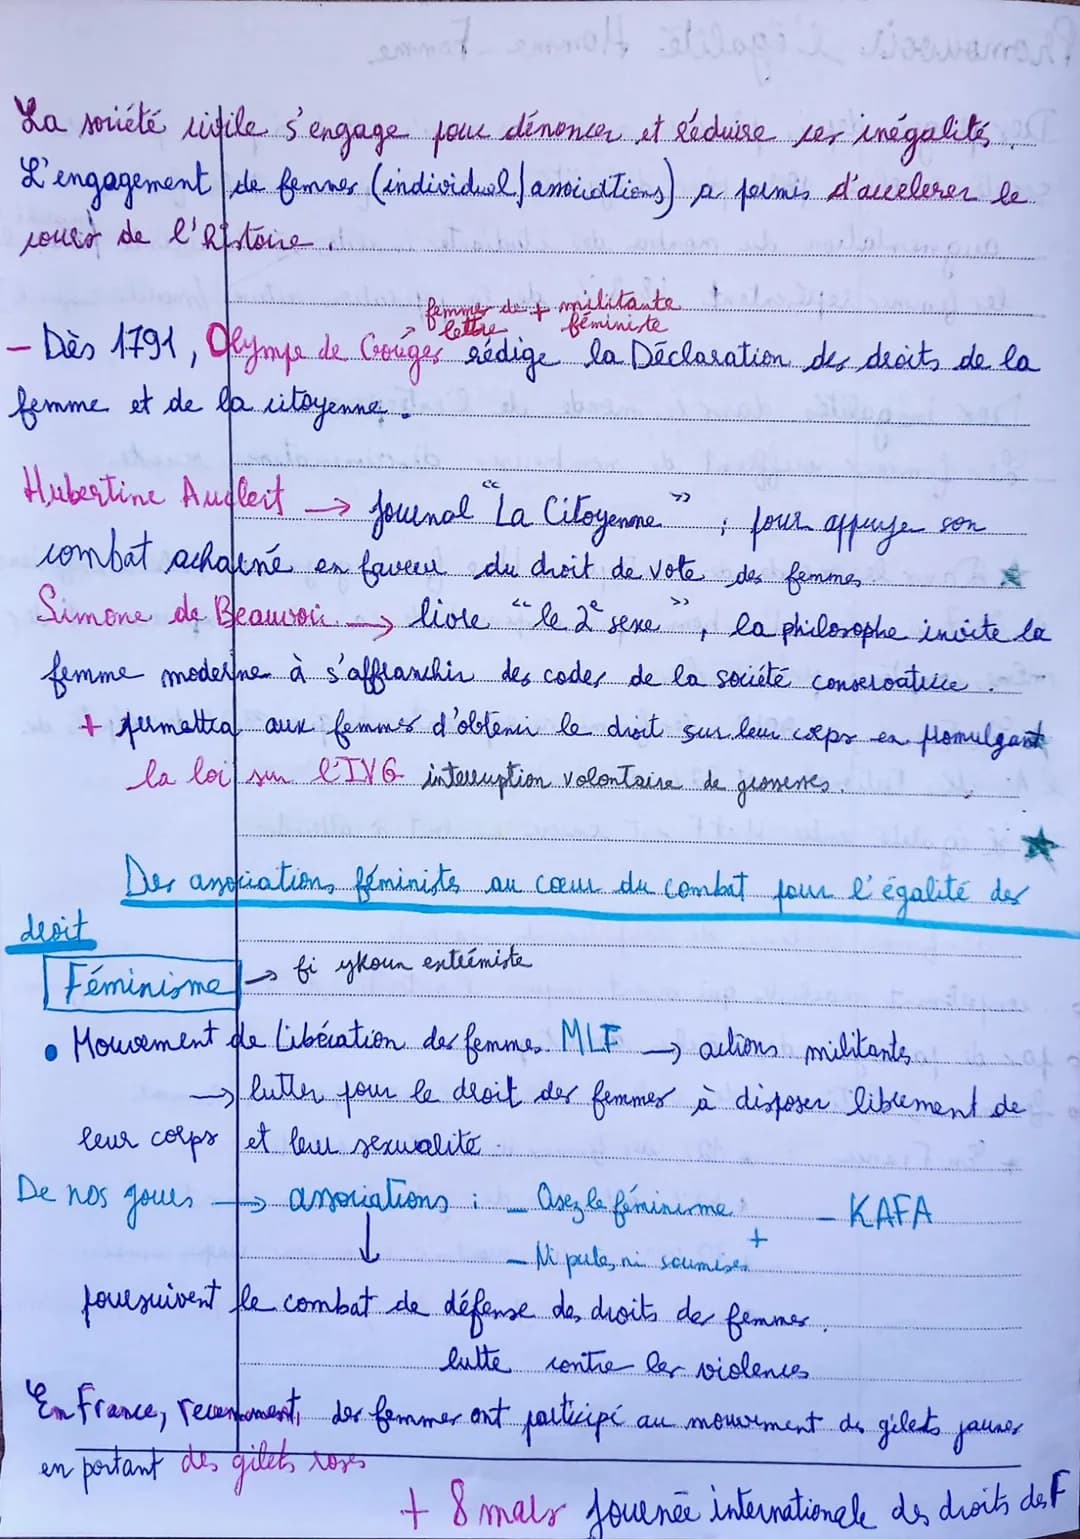 La société civile s'engage pour dénoncer et réduire ces inégalités.
L'engagement de femmes (individuel/associations) a permis d'accelerer le
cours de l'histoire.
femmes de + militante
lettre féministe
- Dès 1791, Olympe de Gouges → rédige la Déclaration des droits de la
femme et de la citoyenne.
Hubertine Aucleit → journal "La Citoyenne", pour appuyer son
combat acharné en faveur du droit de vote des femmes
Simone de Beauvoir → livre "le 2e sexe", la philosophe invite la
femme moderne à s'affranchir des codes de la société conservatrice.
+ permettra aux femmes d'obtenir le droit sur leur corps en promulgant
la loi sur l'IVG interruption volontaire de grossesses.
Des associations féministes au cœur du combat pour l'égalité des
droit
Féminisme → fi ykoun extrémiste
• Mouvement de Libération des femmes MLF → actions militants
→ lutter pour le droit des femmes à disposer librement de
leur corps et leur sexualité.
De nos jours → associations : - Osez le féminisme - KAFA
+
- Ni putes ni soumises
↓
poursuivent le combat de défense des droits des femmes.
lutte contre les violences
En France, recemment, des femmes ont participé au mouvement des gilets jaunes
en portant des gilets roses
+ 8 mars Journée internationale des droits des F